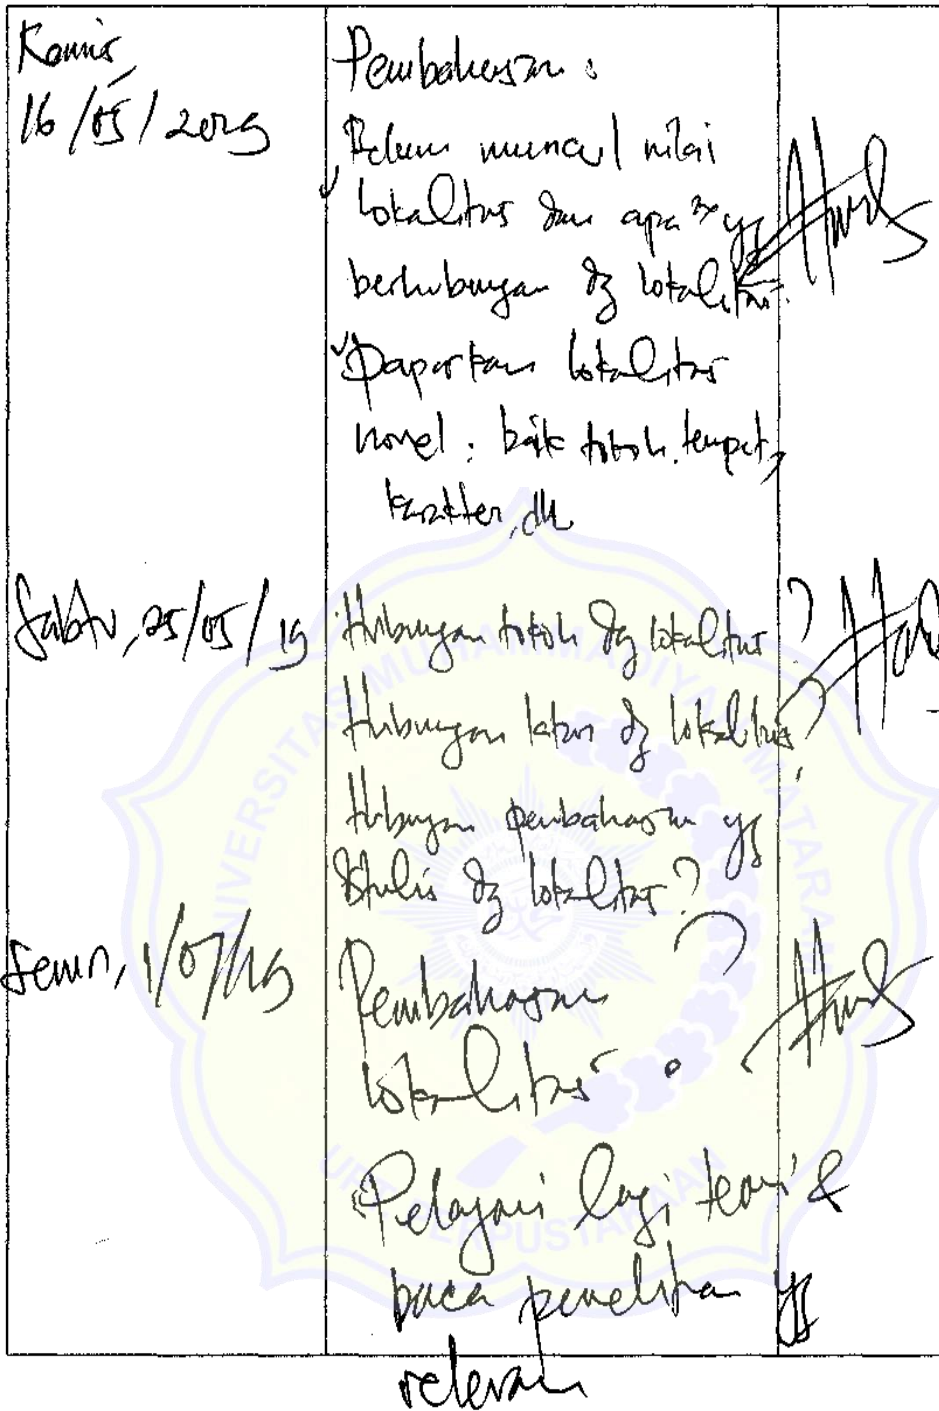 Kamis,
16/05/2019
Pembahasan :
Belum muncul nilai
lokalitas dan apa yg
berhubungan dg lokalitas.
Paparkan lokalitas
novel : baik tokoh, tempat,
karakter, dll
Sabtu, 25/05/19
Hubungan tokoh dg lokalitas ?
Hubungan latar dg lokalitas ?
Hubungan pembahasan yg
ditulis dg lokalitas ?
Senin, 1/07/19
Pembahasan
lokalitas ?
Pelajari lagi teori &
baca penelitian yg
relevan
UNIVERSITAS MUHAMMADIYAH MATARAM
UPT. PERPUSTAKAAN